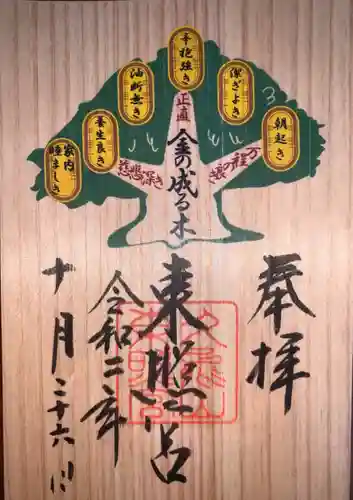 朝起き
潔ぎよき
辛抱強き
油断無き
養生良き
家内
睦ましき
正直
万
程の
よき
慈悲深き
金の成る木
奉拝
東照宮
令和二年
十月二十六日